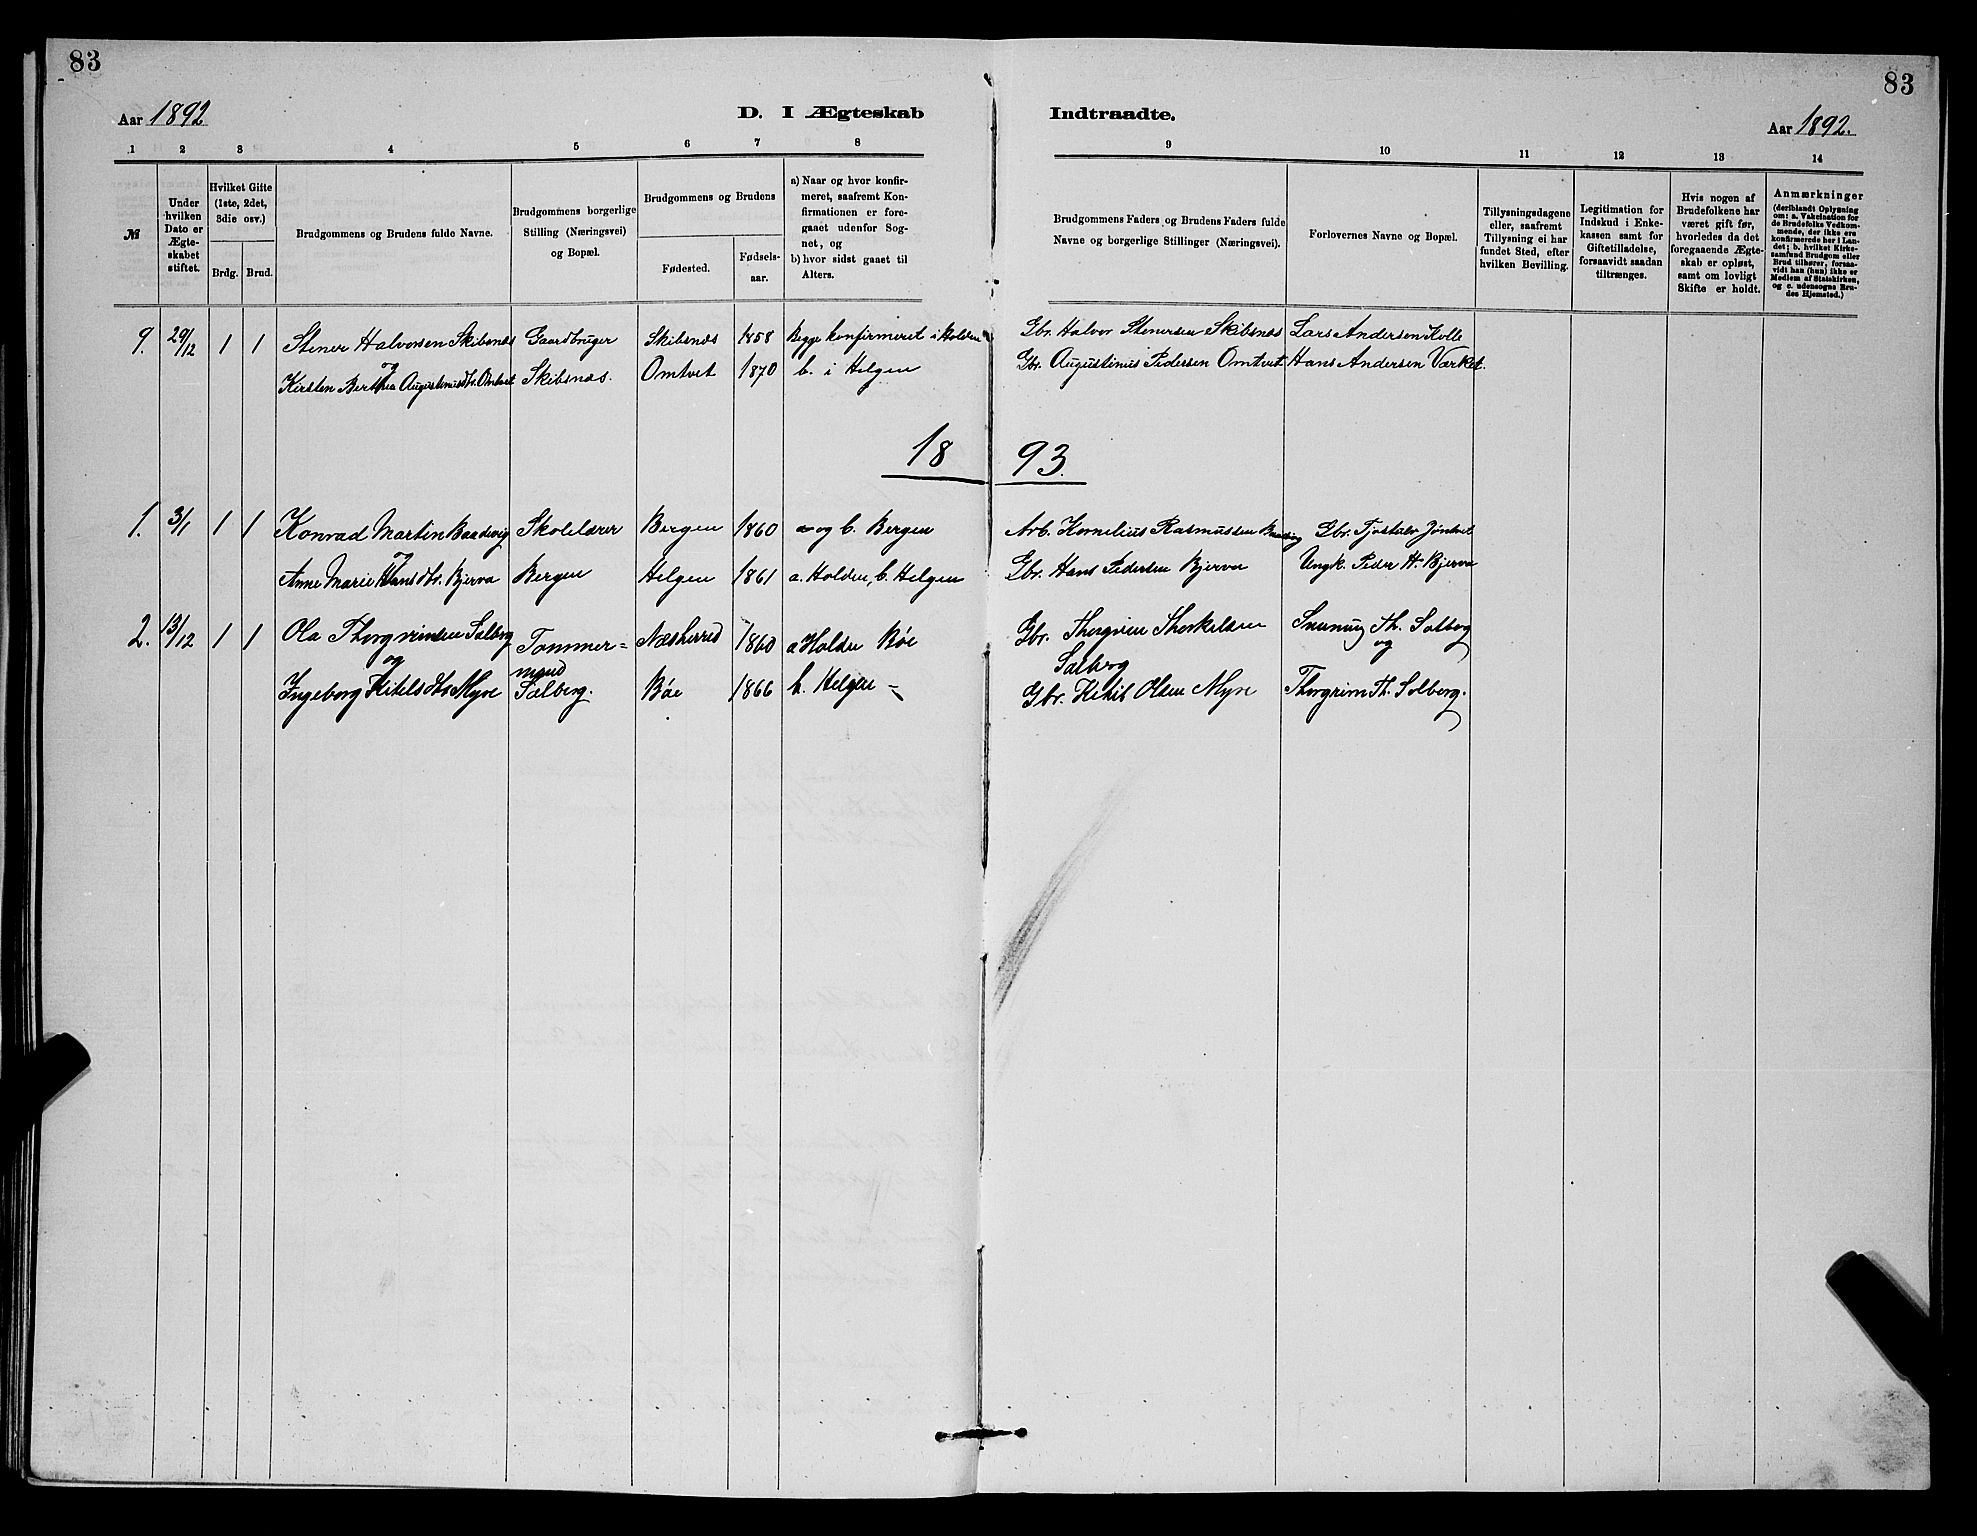 83
83
Aar 1892
D. I Ægteskab
Indtraadte.
Aar 1892.
1 2 3 4 5 6 7 8
9 10 11 12 13 14
№
Under hvilken Dato er Ægteskabet stiftet.
Hvilket Gifte (1ste, 2det, 3die osv.)
Brdg. Brud.
Brudgommens og Brudens fulde Navne.
Brudgommens borgerlige Stilling (Næringsvei) og Bopæl.
Brudgommens og Brudens
Fødested.
Fødsels-aar.
a) Naar og hvor konfirmeret, saafremt Konfirmationen er foregaaet udenfor Sognet, og
b) hvor sidst gaaet til Alters.
Brudgommens Faders og Brudens Faders fulde Navne og borgerlige Stillinger (Næringsvei).
Forlovernes Navne og Bopæl.
Tillysningsdagene eller, saafremt Tillysning ei har fundet Sted, efter hvilken Bevilling.
Legitimation for Indskud i Enkekassen samt for Giftetilladelse, forsaavidt saadan tiltrænges.
Hvis nogen af Brudefolkene har været gift før, hvorledes da det foregaaende Ægteskab er opløst, samt om lovligt Skifte er holdt.
Anmærkninger
(deriblandt Oplysning om: a. Vakcination for de Brudefolks Vedkommende, der ikke ere konfirmerede her i Landet; b. hvilket Kirkesamfund Brudgom eller Brud tilhører, forsaavidt han (hun) ikke er Medlem af Statskirken, og c. udensogns Brudes Hjemsted.)
9. 29/12 1 1 Stener Halvorsen Skibsnæs Gaardbruger Skibsnæs 1858 Begge konfirmeret i Holden Gbr. Halvor Stenersen Skibsnæs Lars Andersen Kolle
og
Kirsten Berthea Augustinusdtr. Omtvet Skibsnæs. Omtvet 1870 b. i Helgen Gbr. Augustinus Pedersen Omtvet Hans Andersen Værket.
18 93.
1. 3/1 1 1 Konrad Martin Baadsvig Skolelærer Bergen 1860 a og b. Bergen Arb. Kornelius Rasmussen Baadsvig Gbr. Tjostulv Jøntvet
og
Anne Marie Hansdtr. Bjerva Bergen Helgen 1861 a. Holden, b. Helgen Gbr. Hans Pedersen Bjerva Ungk. Peder H. Bjerva
2. 13/12 1 1 Ola Thorgrimsen Solberg Tømmer= Næsherred 1860 a Holden Bøe Gbr. Thorgrim Thorkildsen Th. Solberg
og mand Solberg og
Ingeborg Kitilsdtr Myre Solberg. Bøe 1866 b. Helgen Gbr. Kitil Olsen Myre Thorgrim Th. Solberg.